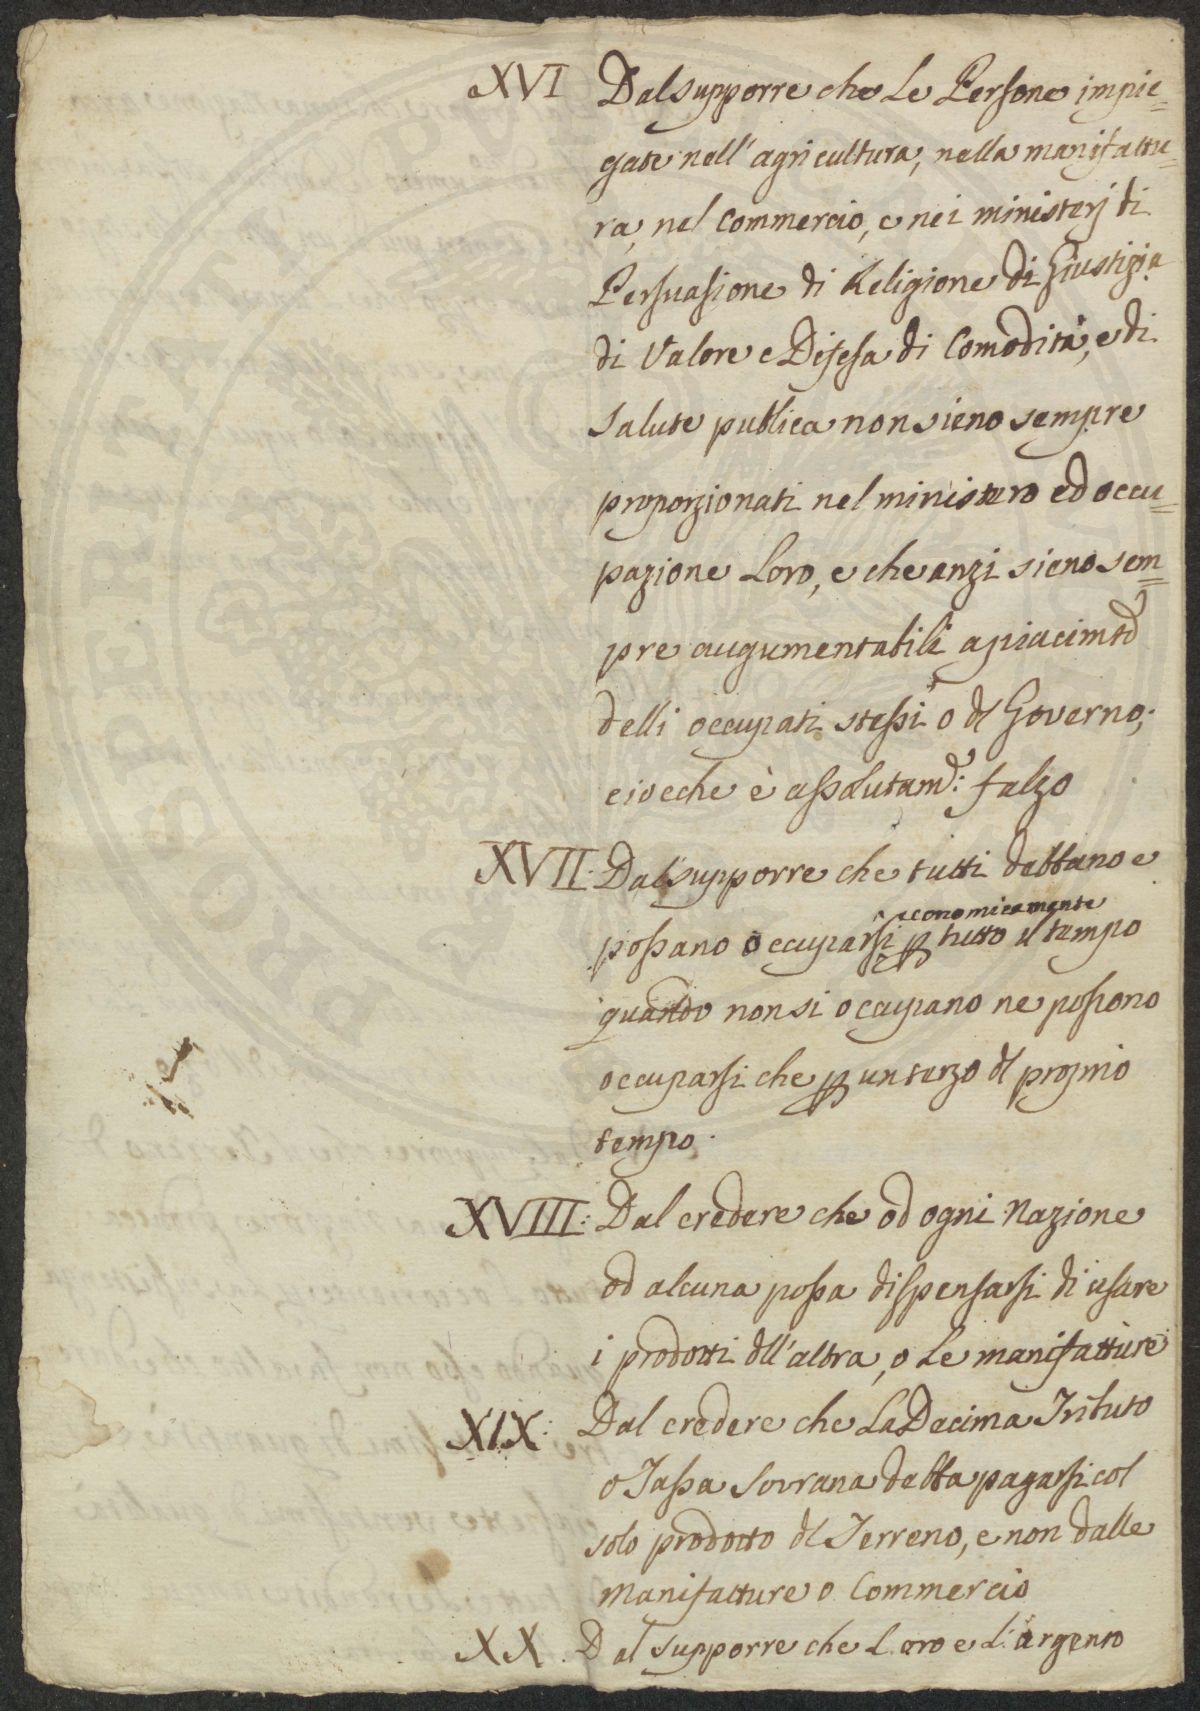 XVI Dal supporre che Le Persone impie=
gate nell'agricultura, nella manifattu=
ra, nel Commercio, e nei ministerj di
Persuasione di Religione di Giustizia
di Valore e Difesa di Comodità, e di
Salute publica non sieno sempre
proporzionati nel ministero ed occu=
pazione Loro, e che anzi sieno sem=
pre augumentabili a piacimto
delli occupati stessi o dl Governo;
cioeche è assolutamte: falzo
XVII. Dal supporre che tutti debbano e
economicamente
possano occuparsi p tutto il tempo
quando non si occupano ne possono
occuparsi che p un terzo dl proprio
tempo.
XVIII: Dal credere che od ogni Nazione
od alcuna possa dispensarsi di usare
i prodotti dll'altra, o Le manifatture
XIX: Dal credere che La Decima Tributo
o Tassa Sovrana debba pagarsi col
solo prodotto dl Terreno, e non dalle
Manifatture o Commercio
XX. Dal supporre che L'oro e L'argento